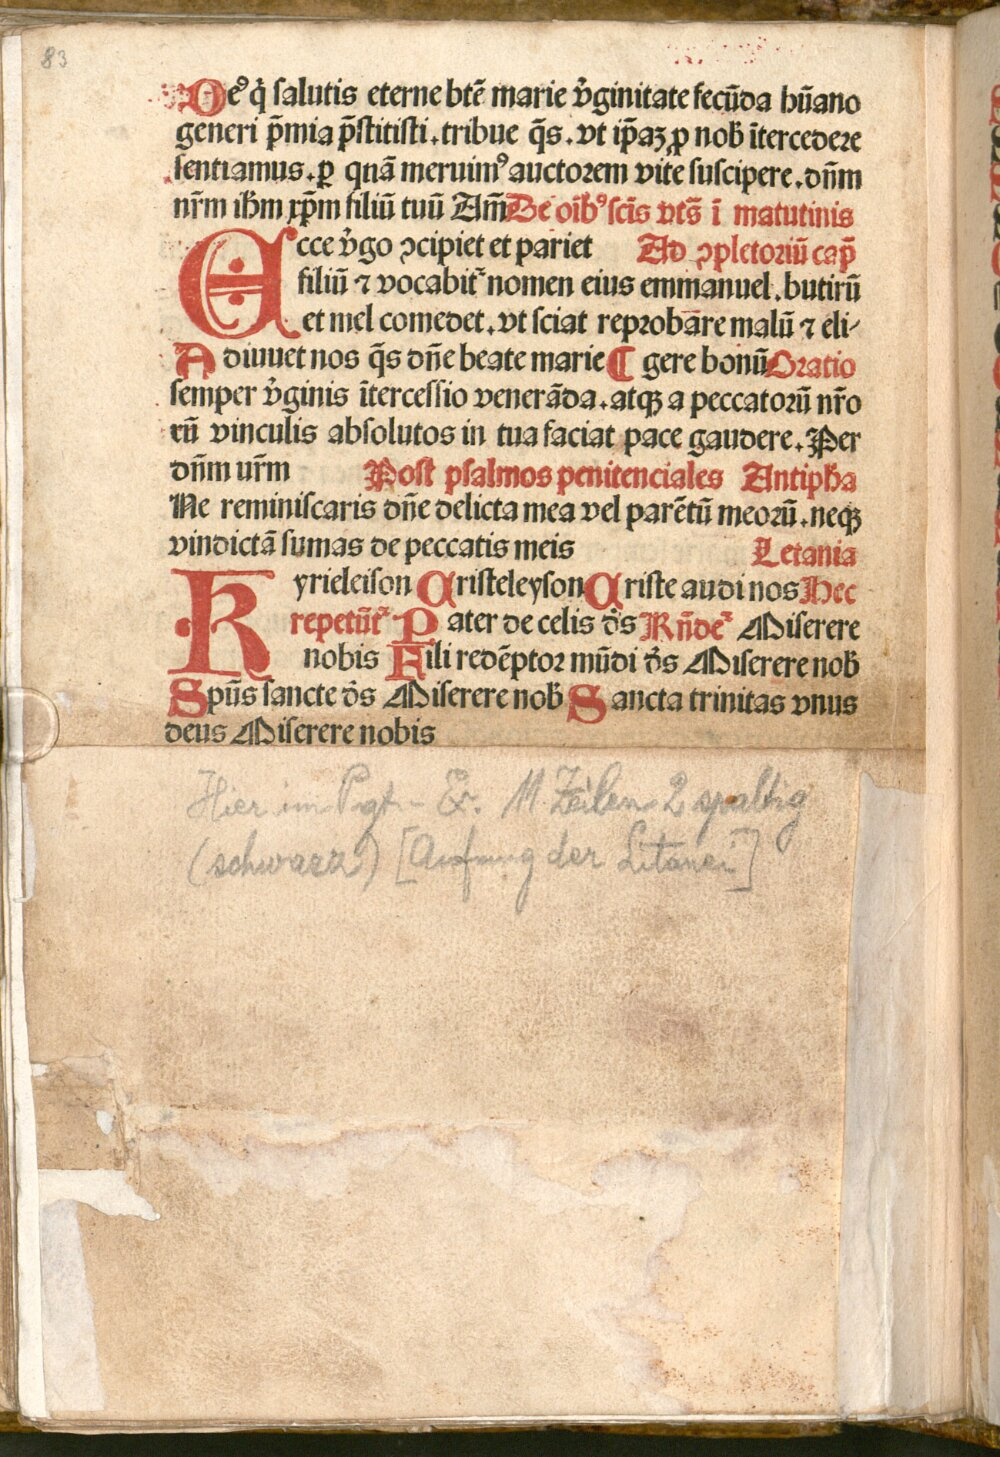 83
Deꝰ q̇ salutis eterne btē marie v̄ginitate fecūda hūano
generi p̄mia p̄stitisti. tribue q̄s. vt ip̄aꝫ ꝓ nob̄ ītercedere
sentiamus. ꝑ quā meruimꝰ auctorem vite suscipere. dn̄m
nr̄m ih̄m xp̄m filiū tuū Am̄ De oīb̄ꝰ sc̄is vts̄ ī matutinis
Ecce v̄go ↄcipiet et pariet Ad ↄpletoriū cap̄
filiū ⁊ vocabit᷑ nomen eius emmanuel. butirū
et mel comedet. vt sciat reprobare malū ⁊ eli⸗
Adiuuet nos q̄s dn̄e beate marie ¶ gere bonū Oratio
semper v̄ginis ītercessio venerāda. atqꝫ a peccatorū nr̄o
rū vinculis absolutos in tua faciat pace gaudere. Per
dn̄m nr̄m Post psalmos penitenciales Antiph̄a
Ne reminiscaris dn̄e delicta mea vel parētū meorū. neqꝫ
vindictā sumas de peccatis meis Letania
Kyrieleison Cristeleyson Criste audi nos Hec
repetūt᷑ Pater de celis d̄s Rn̄de᷑ Miserere
nobis Fili redēptor mūdi d̄s Miserere nob̄
Spūs sancte d̄s Miserere nob̄ Sancta trinitas vnus
deus Miserere nobis
Hier im Pgt.- Ex. 11 Zeilen 2 spaltig
(schwarz) [Anfang der Litanei]